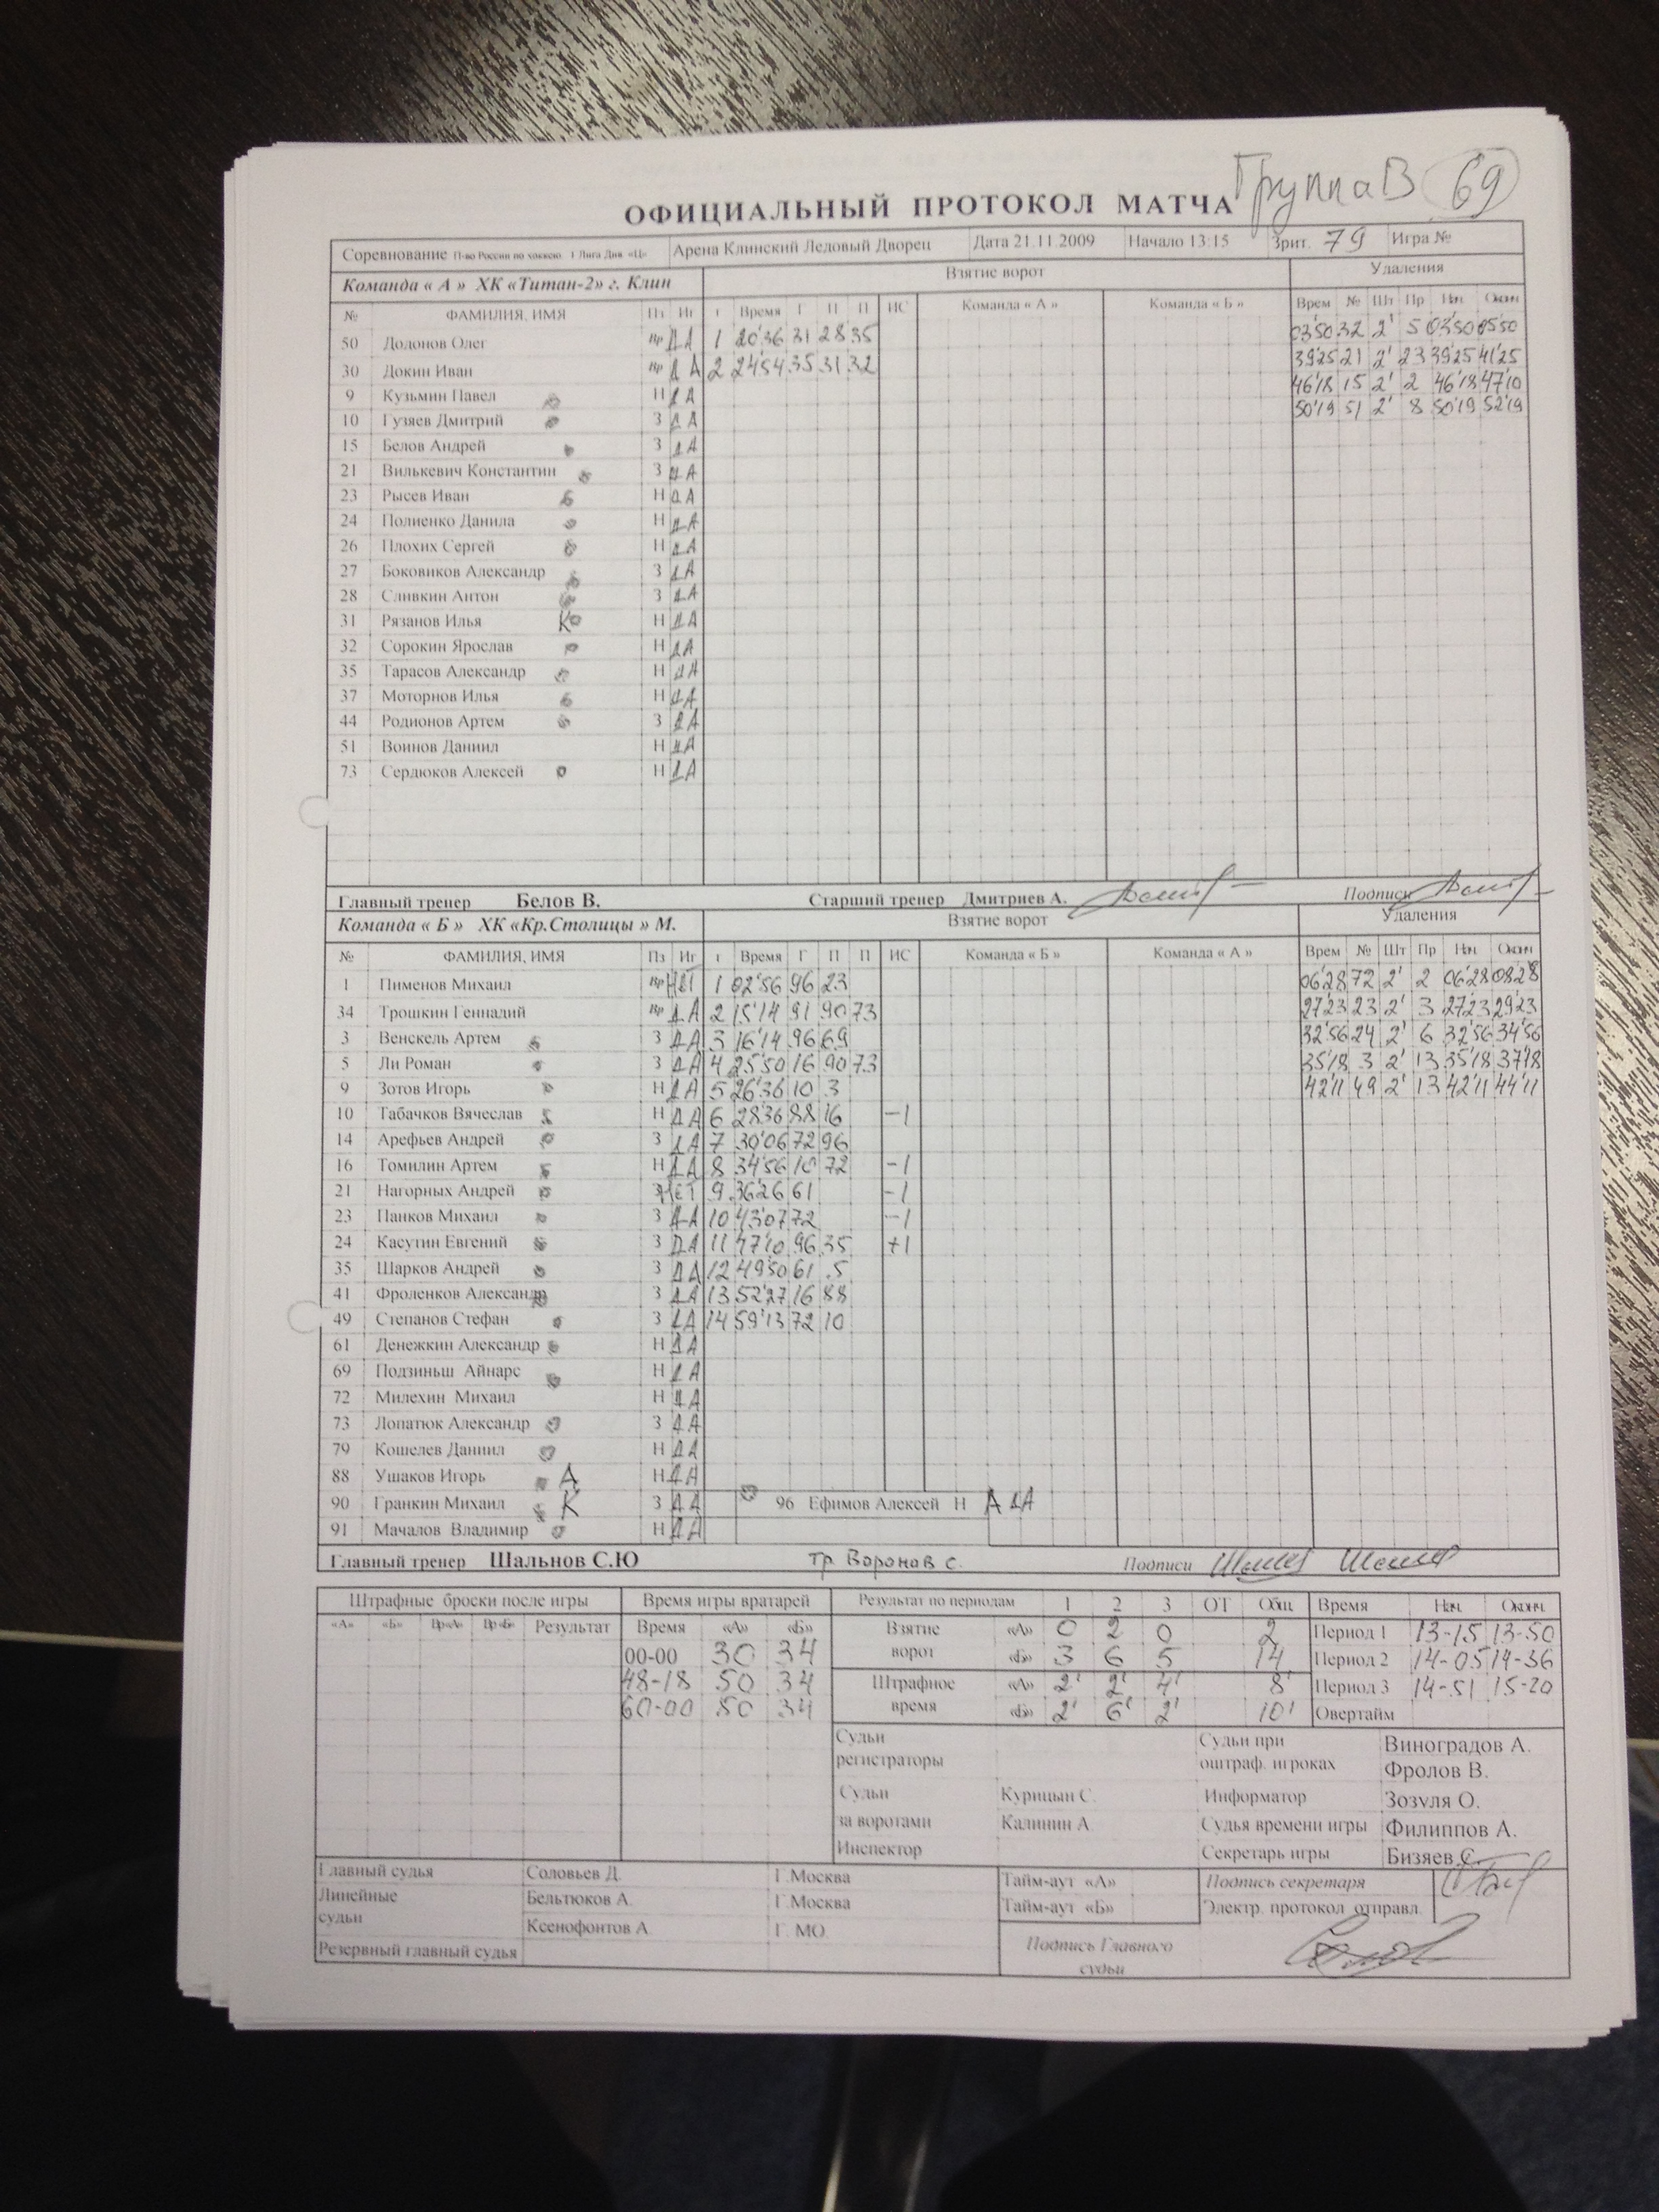 Группа В 69
ОФИЦИАЛЬНЫЙ ПРОТОКОЛ МАТЧА
Соревнование П-во России по хоккею. 1 Лига Див «Ц» Арена Клинский Ледовый Дворец Дата 21.11.2009 Начало 13:15 Зрит. 79 Игра №
Команда « А » ХК «Титан-2» г. Клин Взятие ворот Удаления
№ ФАМИЛИЯ, ИМЯ Пз Иг г Время Г П П ИС Команда « А » Команда « Б » Врем № Шт Пр Нач Оконч
50 Долонов Олег Вр ДА 1 20'36 31 28 35 03'50 32 2' 5 03'50 05'50
30 Докин Иван Вр ДА 2 24'54 35 31 32 39'25 21 2' 23 39'25 41'25
9 Кузьмин Павел Н ДА 46'18 15 2' 2 46'18 47'10
10 Гузяев Дмитрий З ДА 50'19 51 2' 8 50'19 52'19
15 Белов Андрей З ДА
21 Вилькевич Константин З ДА
23 Рысев Иван Н ДА
24 Полиенко Данила Н ДА
26 Плохих Сергей Н ДА
27 Боковиков Александр З ДА
28 Сливкин Антон З ДА
31 Рязанов Илья К Н ДА
32 Сорокин Ярослав Н ДА
35 Тарасов Александр Н ДА
37 Моторнов Илья Н ДА
44 Родионов Артем З ДА
51 Воинов Даниил Н ДА
73 Сердюков Алексей Н ДА
Главный тренер Белов В. Старший тренер Дмитриев А. Подписи
Команда « Б » ХК «Кр.Столицы » М. Взятие ворот Удаления
№ ФАМИЛИЯ, ИМЯ Пз Иг г Время Г П П ИС Команда « Б » Команда « А » Врем № Шт Пр Нач Оконч
1 Пименов Михаил Вр НЕТ 1 02'56 96 23 06'28 72 2' 2 06'28 08'28
34 Трошкин Геннадий Вр ДА 2 15'14 91 90 73 27'23 23 2' 3 27'23 29'23
3 Венскель Артем З ДА 3 16'14 96 69 32'56 24 2' 6 32'56 34'56
5 Ли Роман З ДА 4 25'50 16 90 73 35'18 3 2' 13 35'18 37'18
9 Зотов Игорь Н ДА 5 26'36 10 3 42'11 49 2' 13 42'11 44'11
10 Табачков Вячеслав Н ДА 6 28'36 88 16 -1
14 Арефьев Андрей З ДА 7 30'06 72 96
16 Томилин Артем Н ДА 8 34'56 10 72 -1
21 Нагорных Андрей З НЕТ 9 36'26 61 -1
23 Панков Михаил З ДА 10 43'07 72 -1
24 Касутин Евгений З ДА 11 47'10 96 35 +1
35 Шарков Андрей З ДА 12 49'50 61 5
41 Фроленков Александр З ДА 13 52'27 16 88
49 Степанов Стефан З ДА 14 59'13 72 10
61 Денежкин Александр Н ДА
69 Подзиньш Айнарс Н ДА
72 Милехин Михаил Н ДА
73 Лопатюк Александр З ДА
79 Кошелев Даниил Н ДА
88 Ушаков Игорь А Н ДА
90 Гранкин Михаил К З ДА 96 Ефимов Алексей Н А ДА
91 Мачалов Владимир Н ДА
Главный тренер Шальнов С.Ю тр. Воронов С. Подписи
Штрафные броски после игры Время игры вратарей Результат по периодам 1 2 3 ОТ Общ Время Нач. Оконч.
«А» «Б» Вр«А» Вр«Б» Результат Время «А» «Б» Взятие ворот «А» 0 2 0 2 Период 1 13-15 13-50
00-00 30 34 «Б» 3 6 5 14 Период 2 14-05 14-36
48-18 50 34 Штрафное время «А» 2' 2' 4' 8' Период 3 14-51 15-20
60-00 50 34 «Б» 2' 6' 2' 10' Овертайм
Судьи регистраторы Судьи при оштраф. игроках Виноградов А.
Фролов В.
Судьи за воротами Курицын С. Информатор Зозуля О.
Калинин А. Судья времени игры Филиппов А.
Инспектор Секретарь игры Бизяев С.
Главный судья Соловьев Д. Г.Москва Тайм-аут «А» Подпись секретаря
Линейные судьи Бельтюков А. Г.Москва Тайм-аут «Б» Электр. протокол отправл.
Ксенофонтов А. Г. МО. Подпись Главного судьи
Резервный главный судья